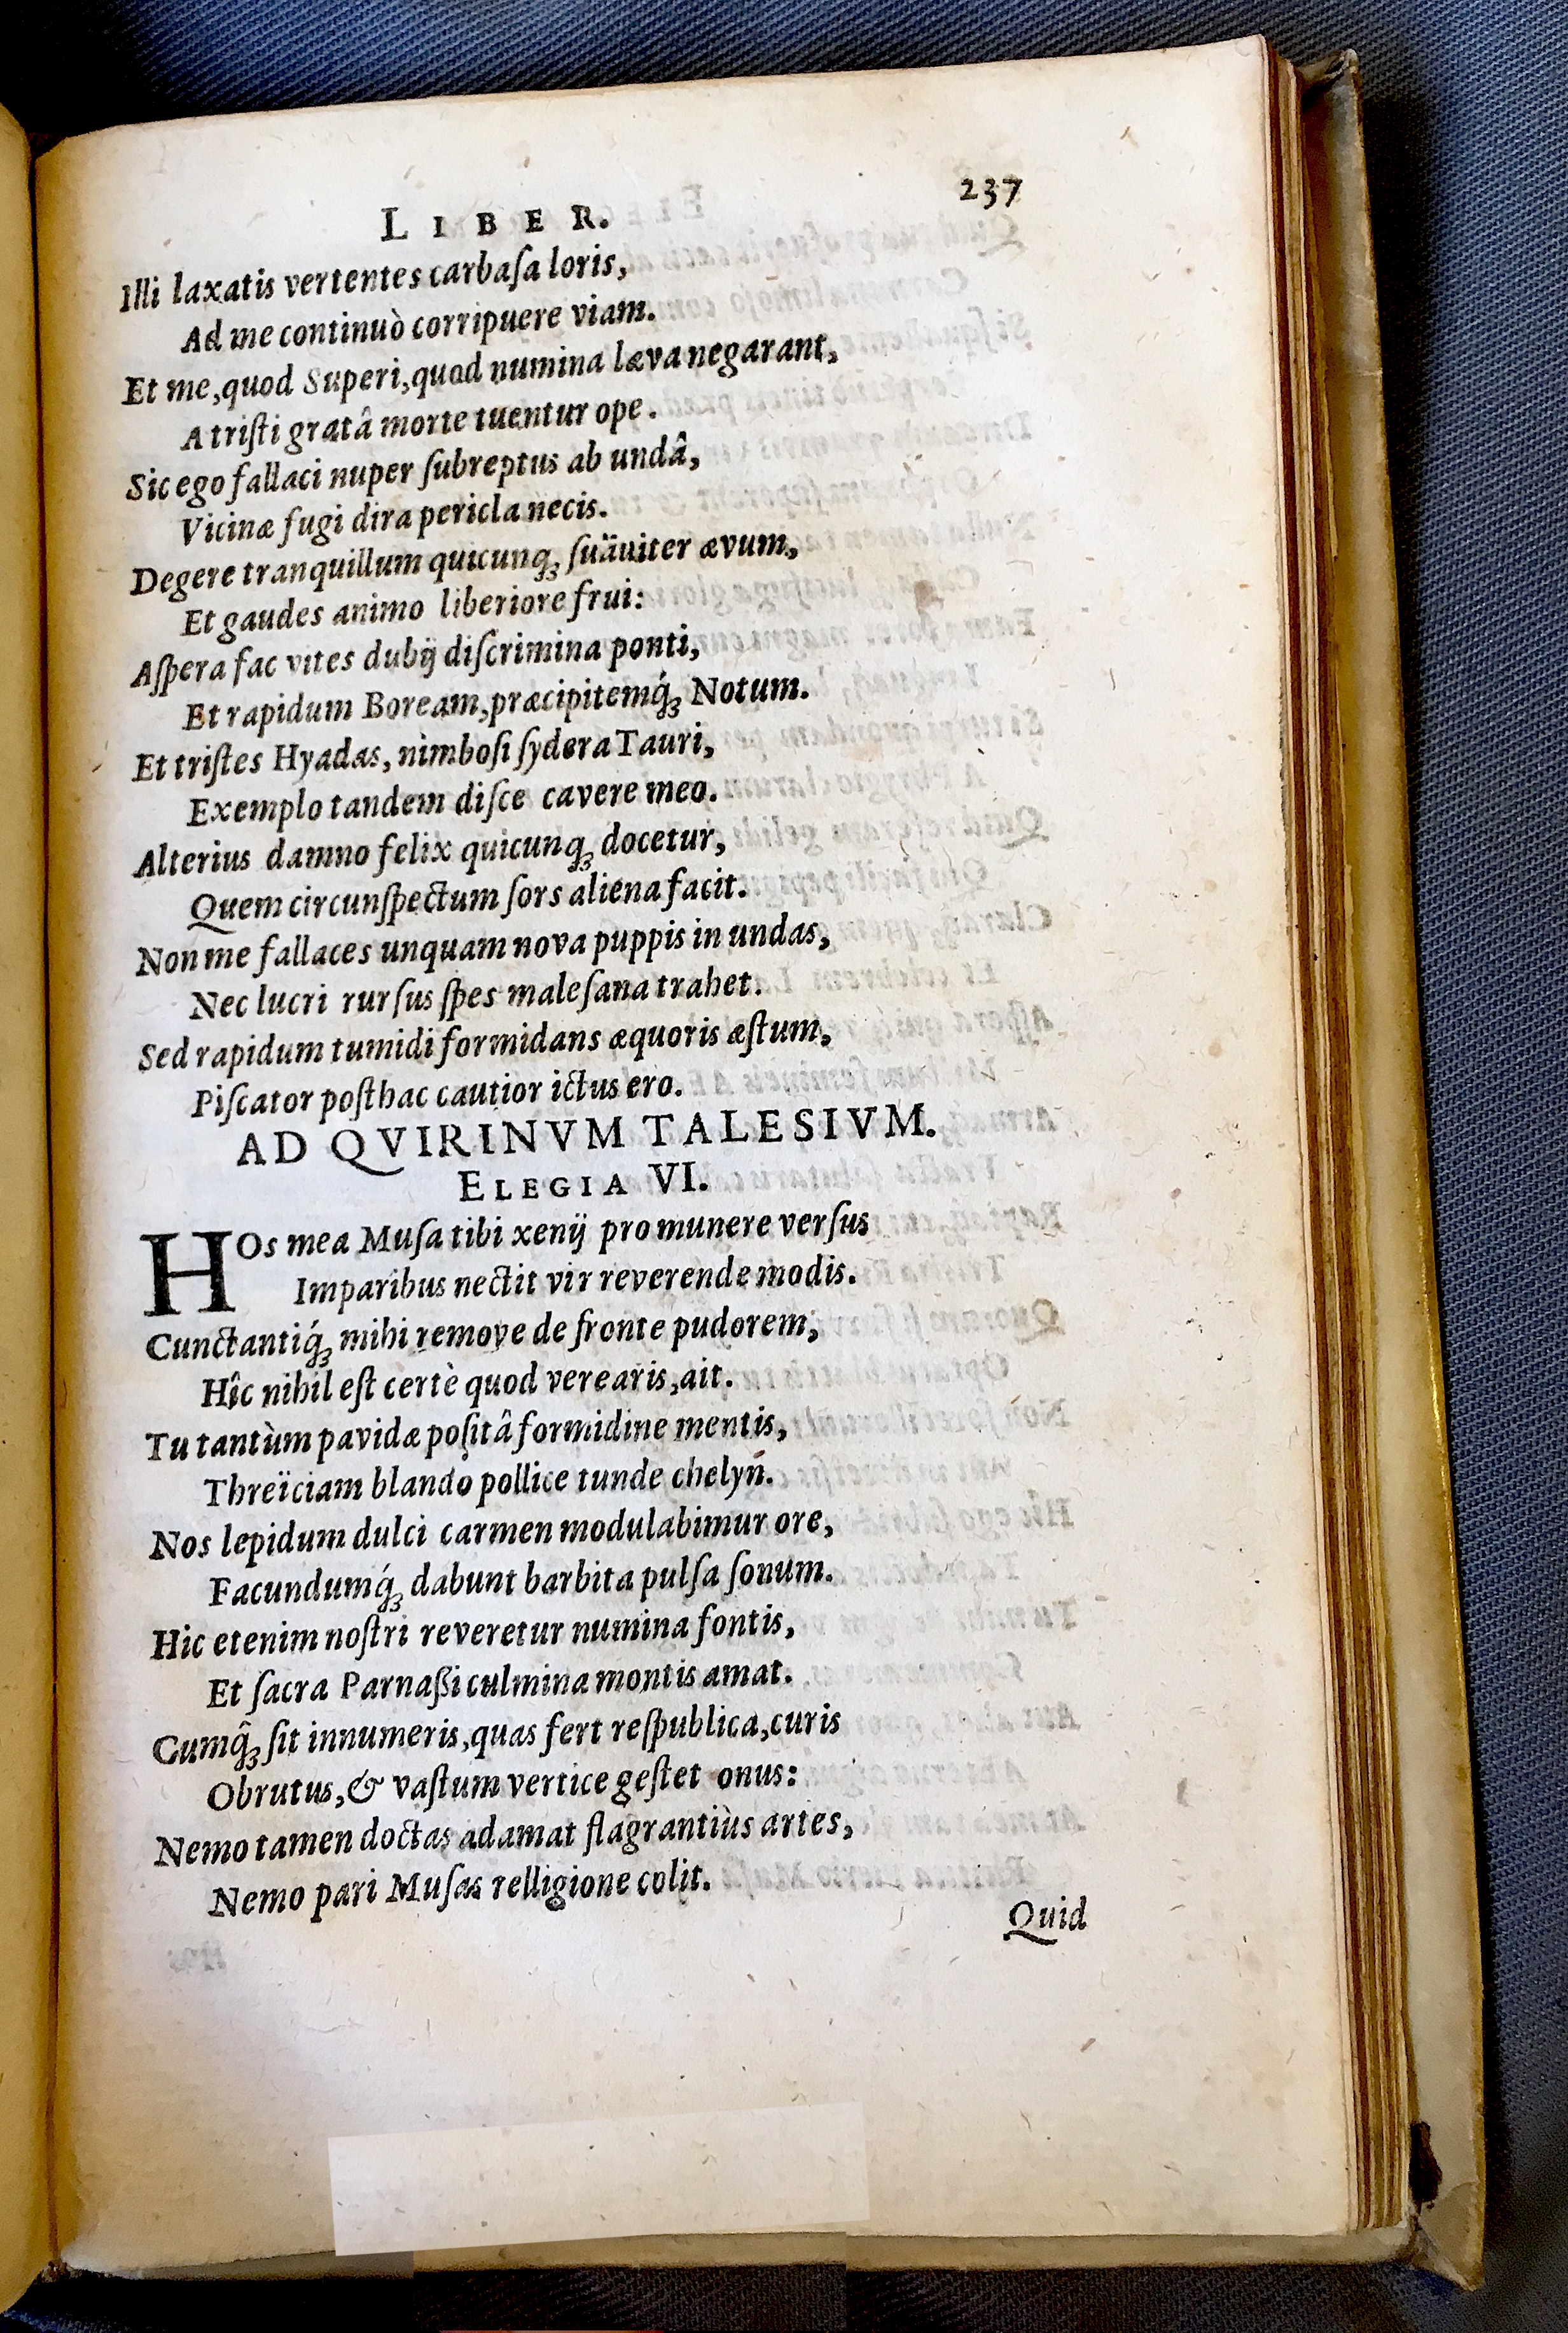 LIBER. 237
Illi laxatis vertentes carbaſa loris,
Ad me continuò corripuere viam.
Et me, quod Superi, quod numina læva negarant,
A triſti gratâ morte tuentur ope.
Sic ego fallaci nuper ſubreptus ab undâ,
Vicinæ fugi dira pericla necis.
Degere tranquillum quicunq́ꝫ ſuäviter ævum,
Et gaudes animo liberiore frui:
Aſpera fac vites dubij diſcrimina ponti,
Et rapidum Boream, præcipitemq́ꝫ Notum.
Et triſtes Hyadas, nimboſi ſydera Tauri,
Exemplo tandem diſce cavere meo.
Alterius damno felix quicunqꝫ docetur,
Quem circunſpectum ſors aliena facit.
Non me fallaces unquam nova puppis in undas,
Nec lucri rurſus ſpes maleſana trahet.
Sed rapidum tumidi formidans æquoris æſtum,
Piſcator poſthac cautior ictus ero.
AD QVIRINVM TALESIVM.
ELEGIA VI.
HOs mea Muſa tibi xenij pro munere verſus
Imparibus nectit vir reverende modis.
Cunctantiq́ꝫ mihi remove de fronte pudorem,
Hîc nihil eſt certè quod verearis, ait.
Tu tantùm pavidæ poſitâ formidine mentis,
Threïciam blando pollice tunde chelyn.
Nos lepidum dulci carmen modulabimur ore,
Facundumq́ꝫ dabunt barbita pulſa ſonum.
Hic etenim noſtri reveretur numina fontis,
Et ſacra Parnaßi culmina montis amat.
Cumq̂ꝫ ſit innumeris, quas fert reſpublica, curis
Obrutus, & vaſtum vertice geſtet onus:
Nemo tamen doctas adamat flagrantiùs artes,
Nemo pari Muſas relligione colit.
Quid